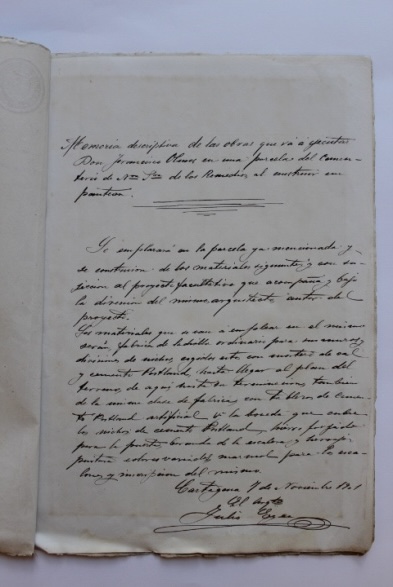 Memoria descriptiva de las obras que vá á ejecutar
Don Francisco en una parcela del Cemen-
terio de Ntra Sra de los Remedios, al construir un
panteon.
Se emplazará en la parcela ya mencionada y
se construirá de los materiales siguientes y con su-
jecion al proyecto facultativo que acompaña y bajo
la direccion del mismo arquitecto autor del
proyecto.
Los materiales que se van á emplear en el mismo
serán fábrica de ladrillo ordinario para sus muros y
divisiones de nichos, cogidos este con mortero de cal
y cemento Portland, hasta llegar al plan del
terreno, de aqui hasta su terminacion, tambien
de la misma clase de fábrica, con
Portland artificial la boveda que cubre
los nichos de cemento Portland, hierro forjado
para la puerta, de la escalera y
mármol para la esca-
lera y inscripcion del mismo.
Cartagena de Noviembre
El Arqto
Julio